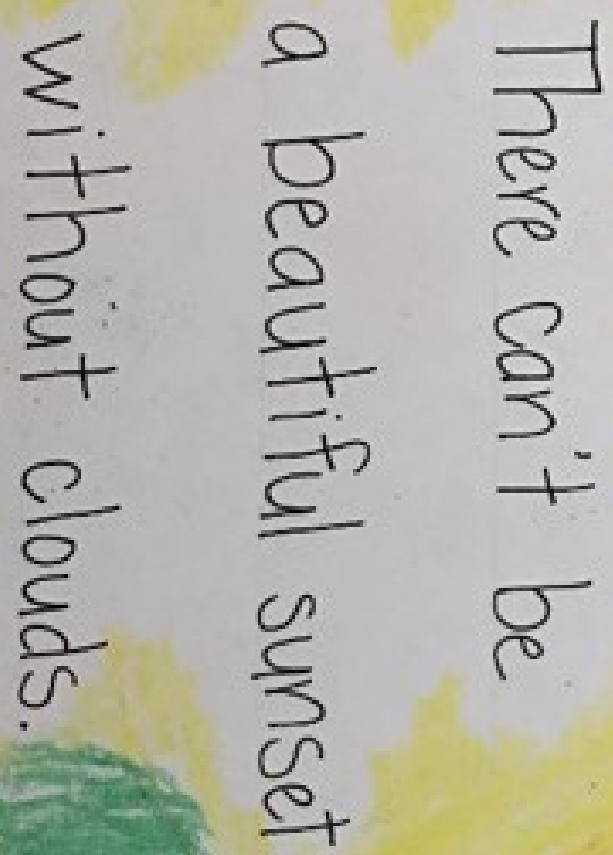 There can't be
a beautiful sunset
without clouds.